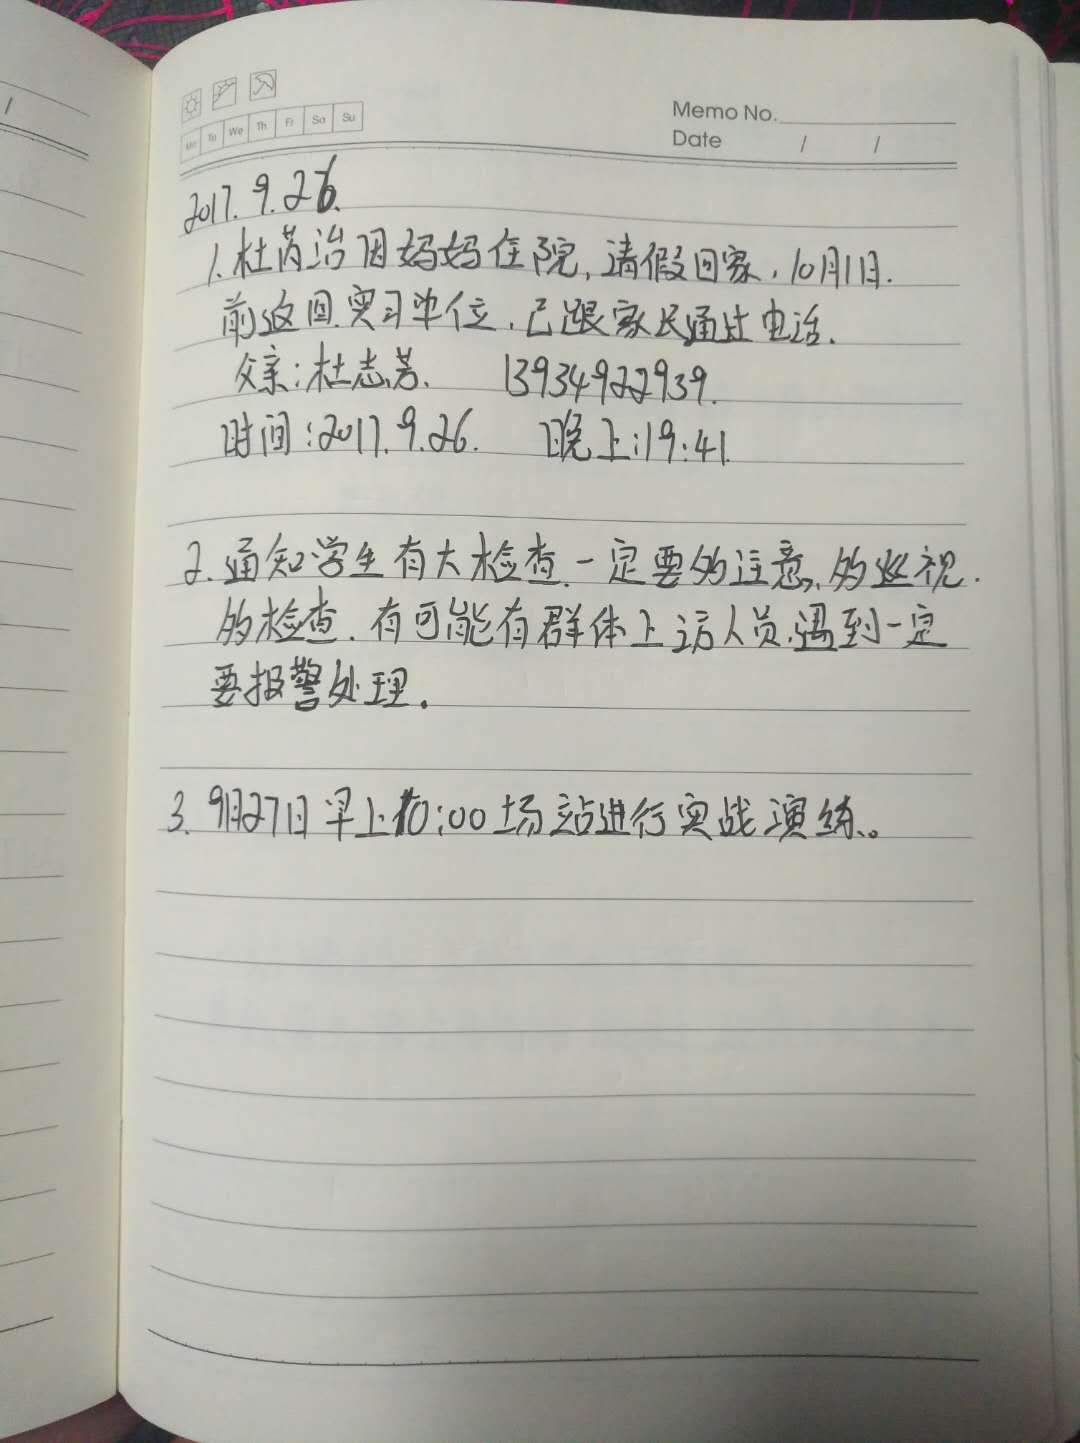 Mo Tu We Th Fr Sa Su
Memo No.
Date / /
2017.9.26.
1.杜芮治因妈妈住院,请假回家,10月1日.
前返回.实习单位,已跟家长通过电话.
父亲:杜志芳. 13934922939.
时间:2017.9.26. 晚上:19:41.
2.通知学生有大检查.一定要多注意,多巡视.
多检查.有可能有群体上访人员,遇到一定
要报警处理.
3.9月27日早上10:00场站进行实战演练。
/